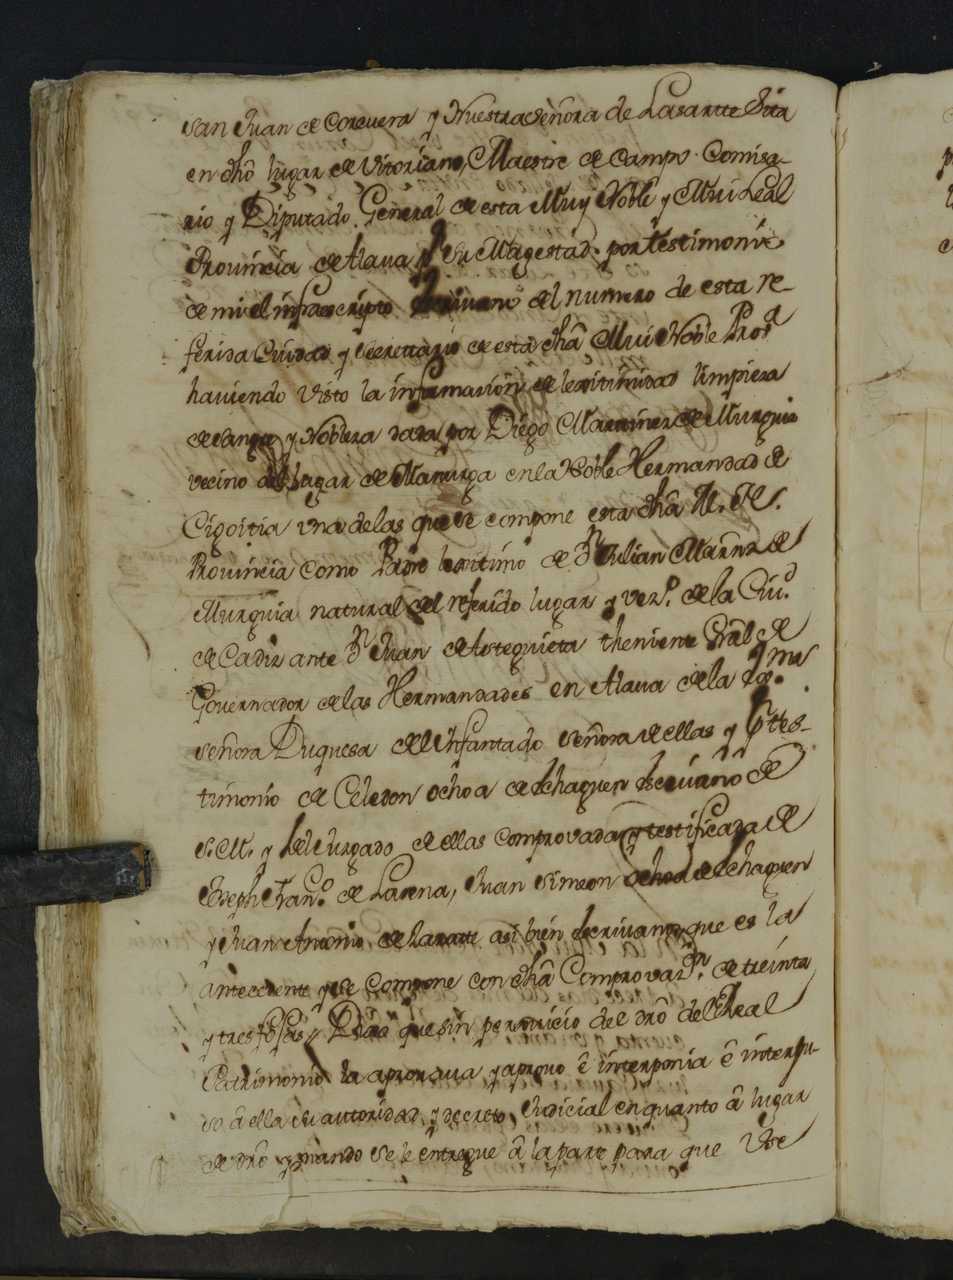 san Juan de Corcuera y Nuestra Señora de Lasartte Sita
en dhô lugar de Vitoriano, Maestre de Campo Comisa-
rio y Diputado General de esta Muy Noble y Mui Leal
Provincia de Alava por Su Magestad. por testimonio
de mi el infraescripto escrivano del numero de esta re-
ferida Ciudad y Secrettario de esta dhâ Mui Noble Prova
haviendo visto la informacion de lexitimidad limpieza
de sangre y Nobleza dada por Diego Martinez de Murguia
vecino del Lugar de Manurga en la Noble Hermandad de
Cigoitia una de las que se compone esta dhâ M. N.
Provincia como Padre lexitimo de Dn Julian Marnz de
Murguia natural del referido lugar y vezo. de la Ciud
de Cadiz ante Dn Juan de Astequieta theniente Gral de
Governador de las Hermandades en Alava de la Exma.
señora Duquesa del Infantado Señora de ellas y por tes-
timonio de Celedon ochoa de Echaguen escrivano de
S. M. y del Juzgado de ellas comprovada y testificada de
Joseph Frano. de Lasena, Juan Simeon Ochoa de Echaguen
y Juan Antonio de Zarate asi bien escrivanos que es la
antecedente y se compone con dhâ Comprovazn. de treinta
y tres foxas, Dixo que sin perxuicio del dro del Real
Patrimonio la aprovava y aprovo ê interponia ê interpu-
so â ella su autoridad, y decreto, Judicial en quanto â lugar
de dro y mando se le entregue â la parte para que Use